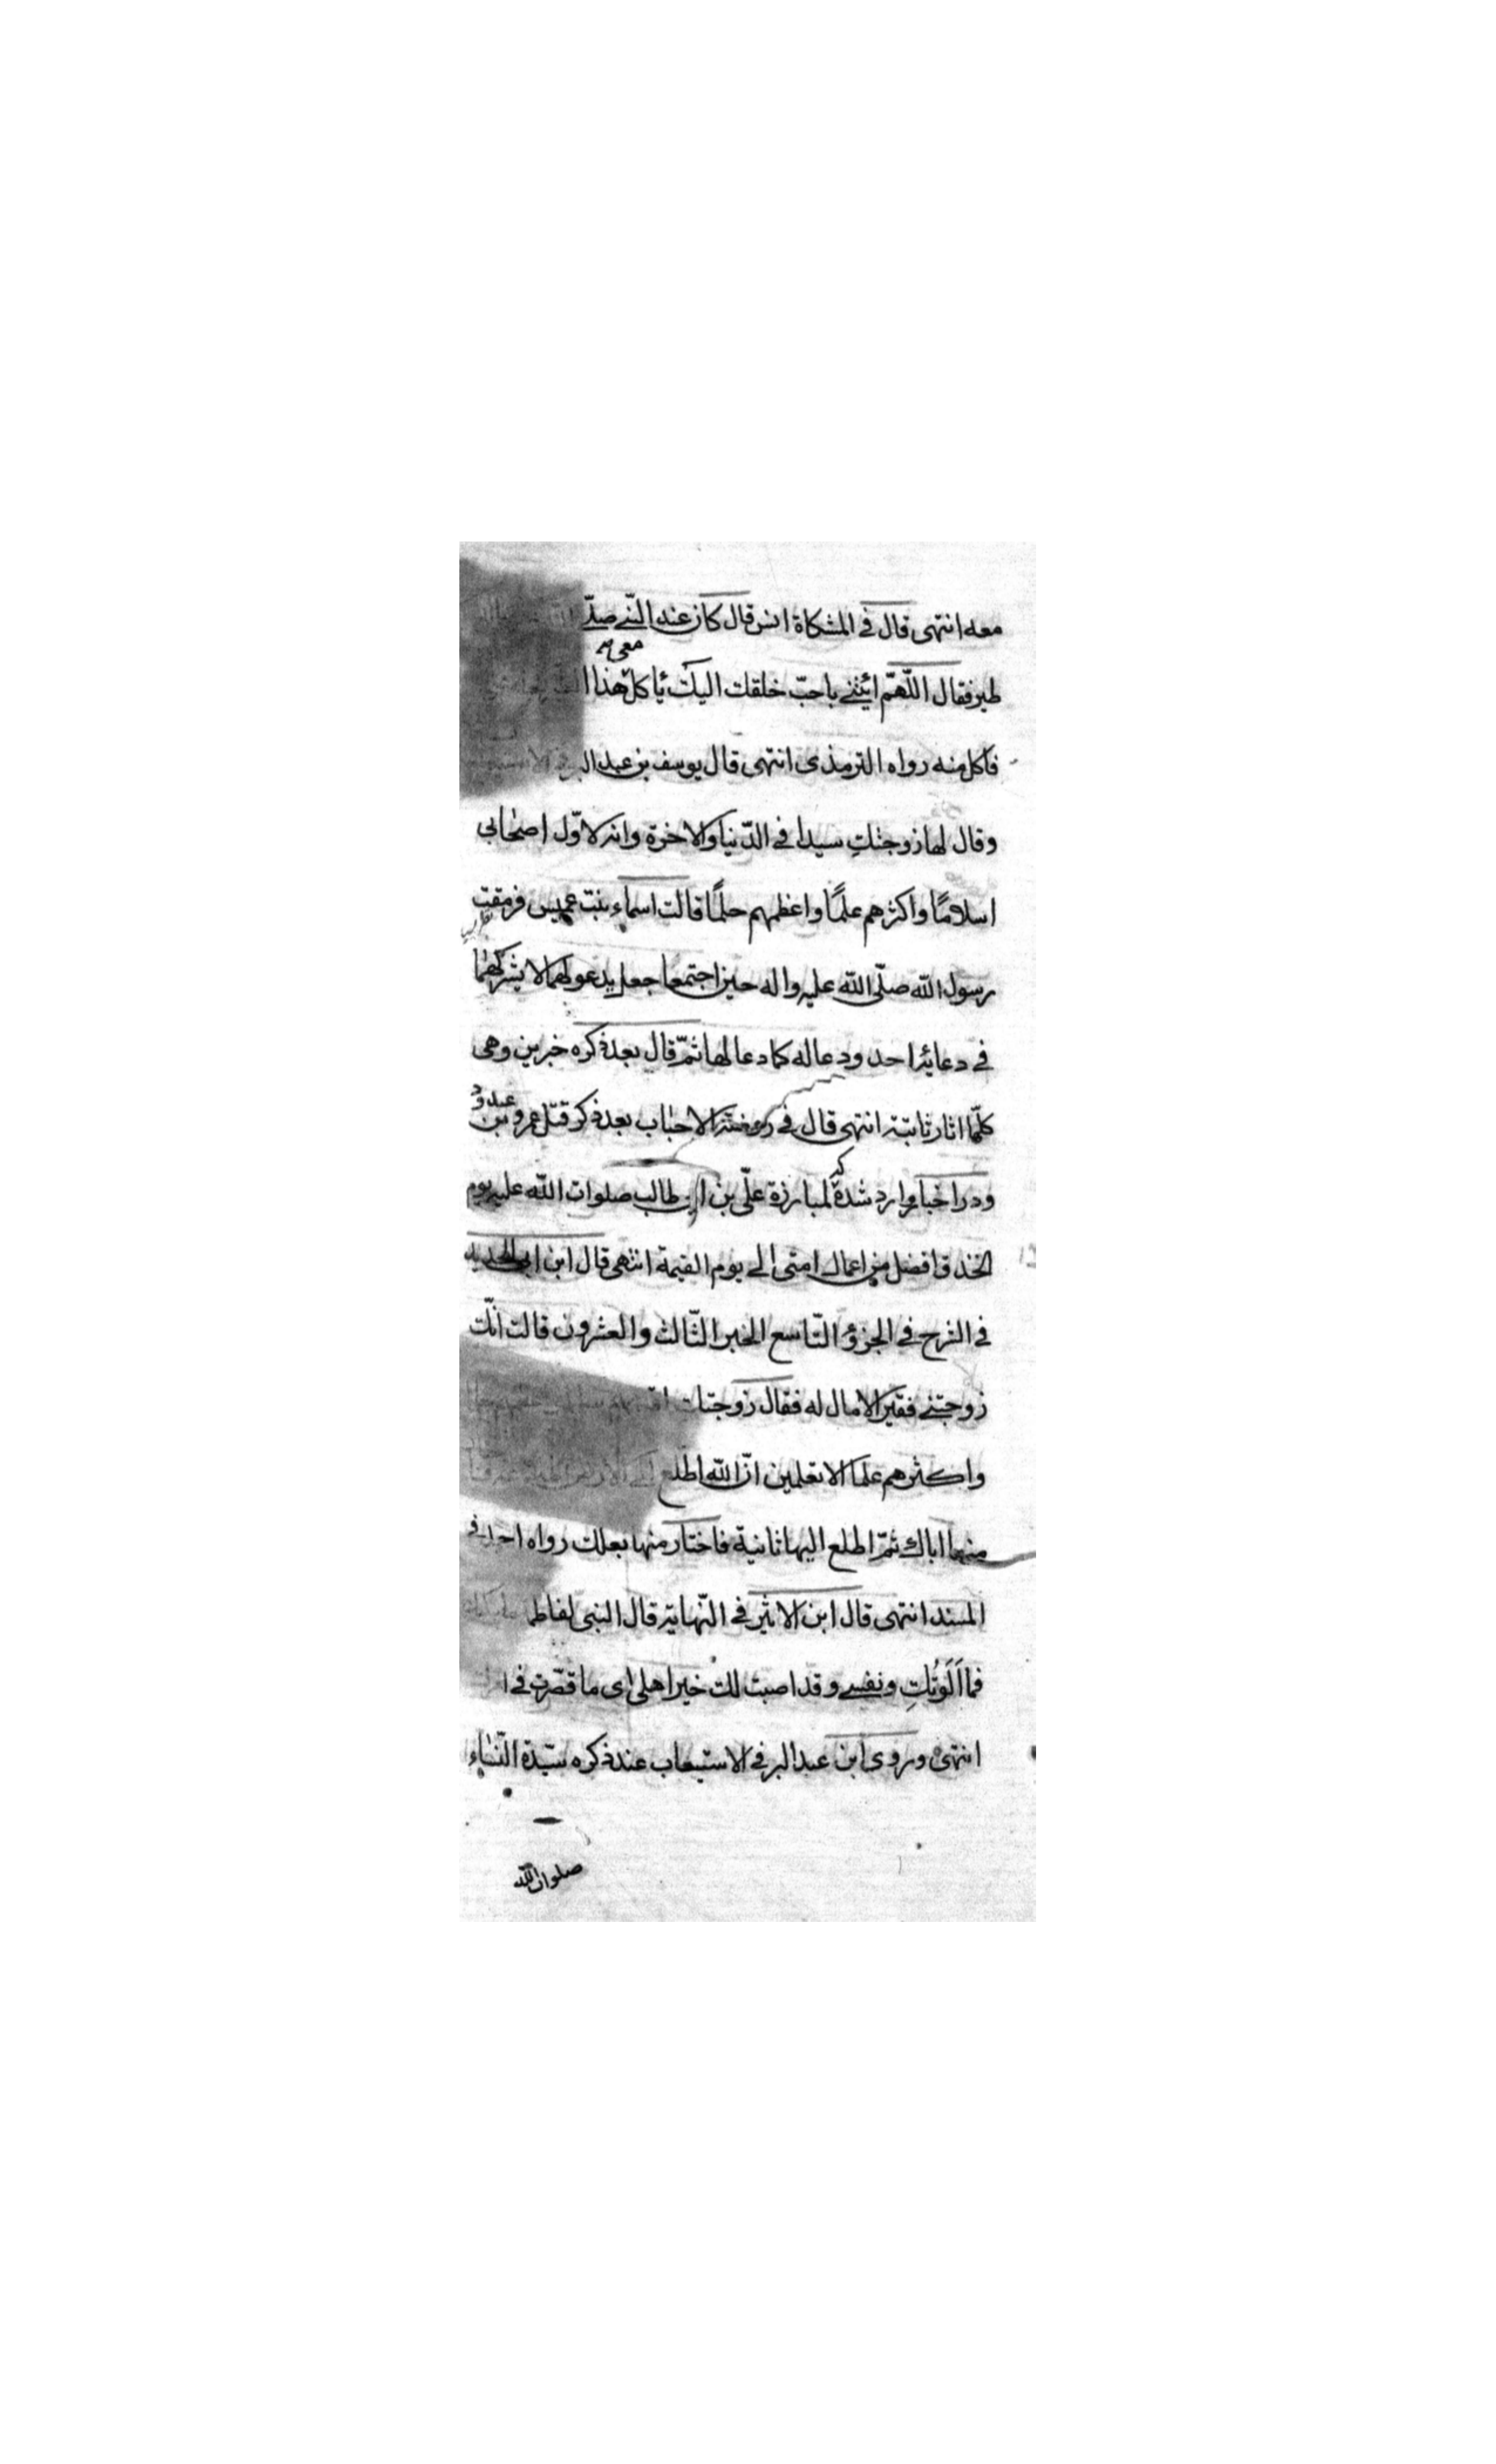 معه انتهى قال في المشكاة انس قال كان عند النبي صلى
معى
طير فقال اللّهمّ ائتني باحبّ خلقك اليك يأكل هذا
فأكل منه رواه الترمذى انتهى قال يوسف بن عبد البر
وقال لها زوجتك سيدا في الدّنيا والاخرة وانه لاوّل اصحابى
اسلامًا واكثرهم علمًا واعظمهم حلمًا قالت اسماء بنت عميس فرمقت
رسول الله صلّى الله عليه واله حين اجتمعا جعل يدعو لهما لا يشركهما
في دعائه احد ودعا له كما دعا لها ثمّ قال بعد ذكره خبرين وهى
كلّها اثار ثابتة انتهى قال في روضة الاحباب بعد ذكر قتل عمرو بن عبد ودّ
ودر اخبار وارد شده كه لمبارزة علّى بن ابى طالب صلوات اللّه عليه يوم
الخندق افضل من اعمال امتى الى يوم القيمة انتهى قال ابن ابى الحديد
في الشرح في الجزؤ التّاسع الخبر الثّالث والعشرون قالت انّك
زوجتنى فقيرا لا مال له فقال زوجتك
واكثرهم علما الا تعلمين انّ اللّه اطلع
منها اباك ثمّ اطلع اليها ثانية فاختار منها بعلك رواه احمد فى
المسند انتهى قال ابن الاثير في النّهاية قال النبى لفاطمة
فما اَلَوتُكِ ونفسى وقد اصبت لك خير اهلى اى ما قصّرت في
انتهى وروى ابن عبد البر في الاستيعاب عند ذكره سيّدة النّساء
صلوات اللّه